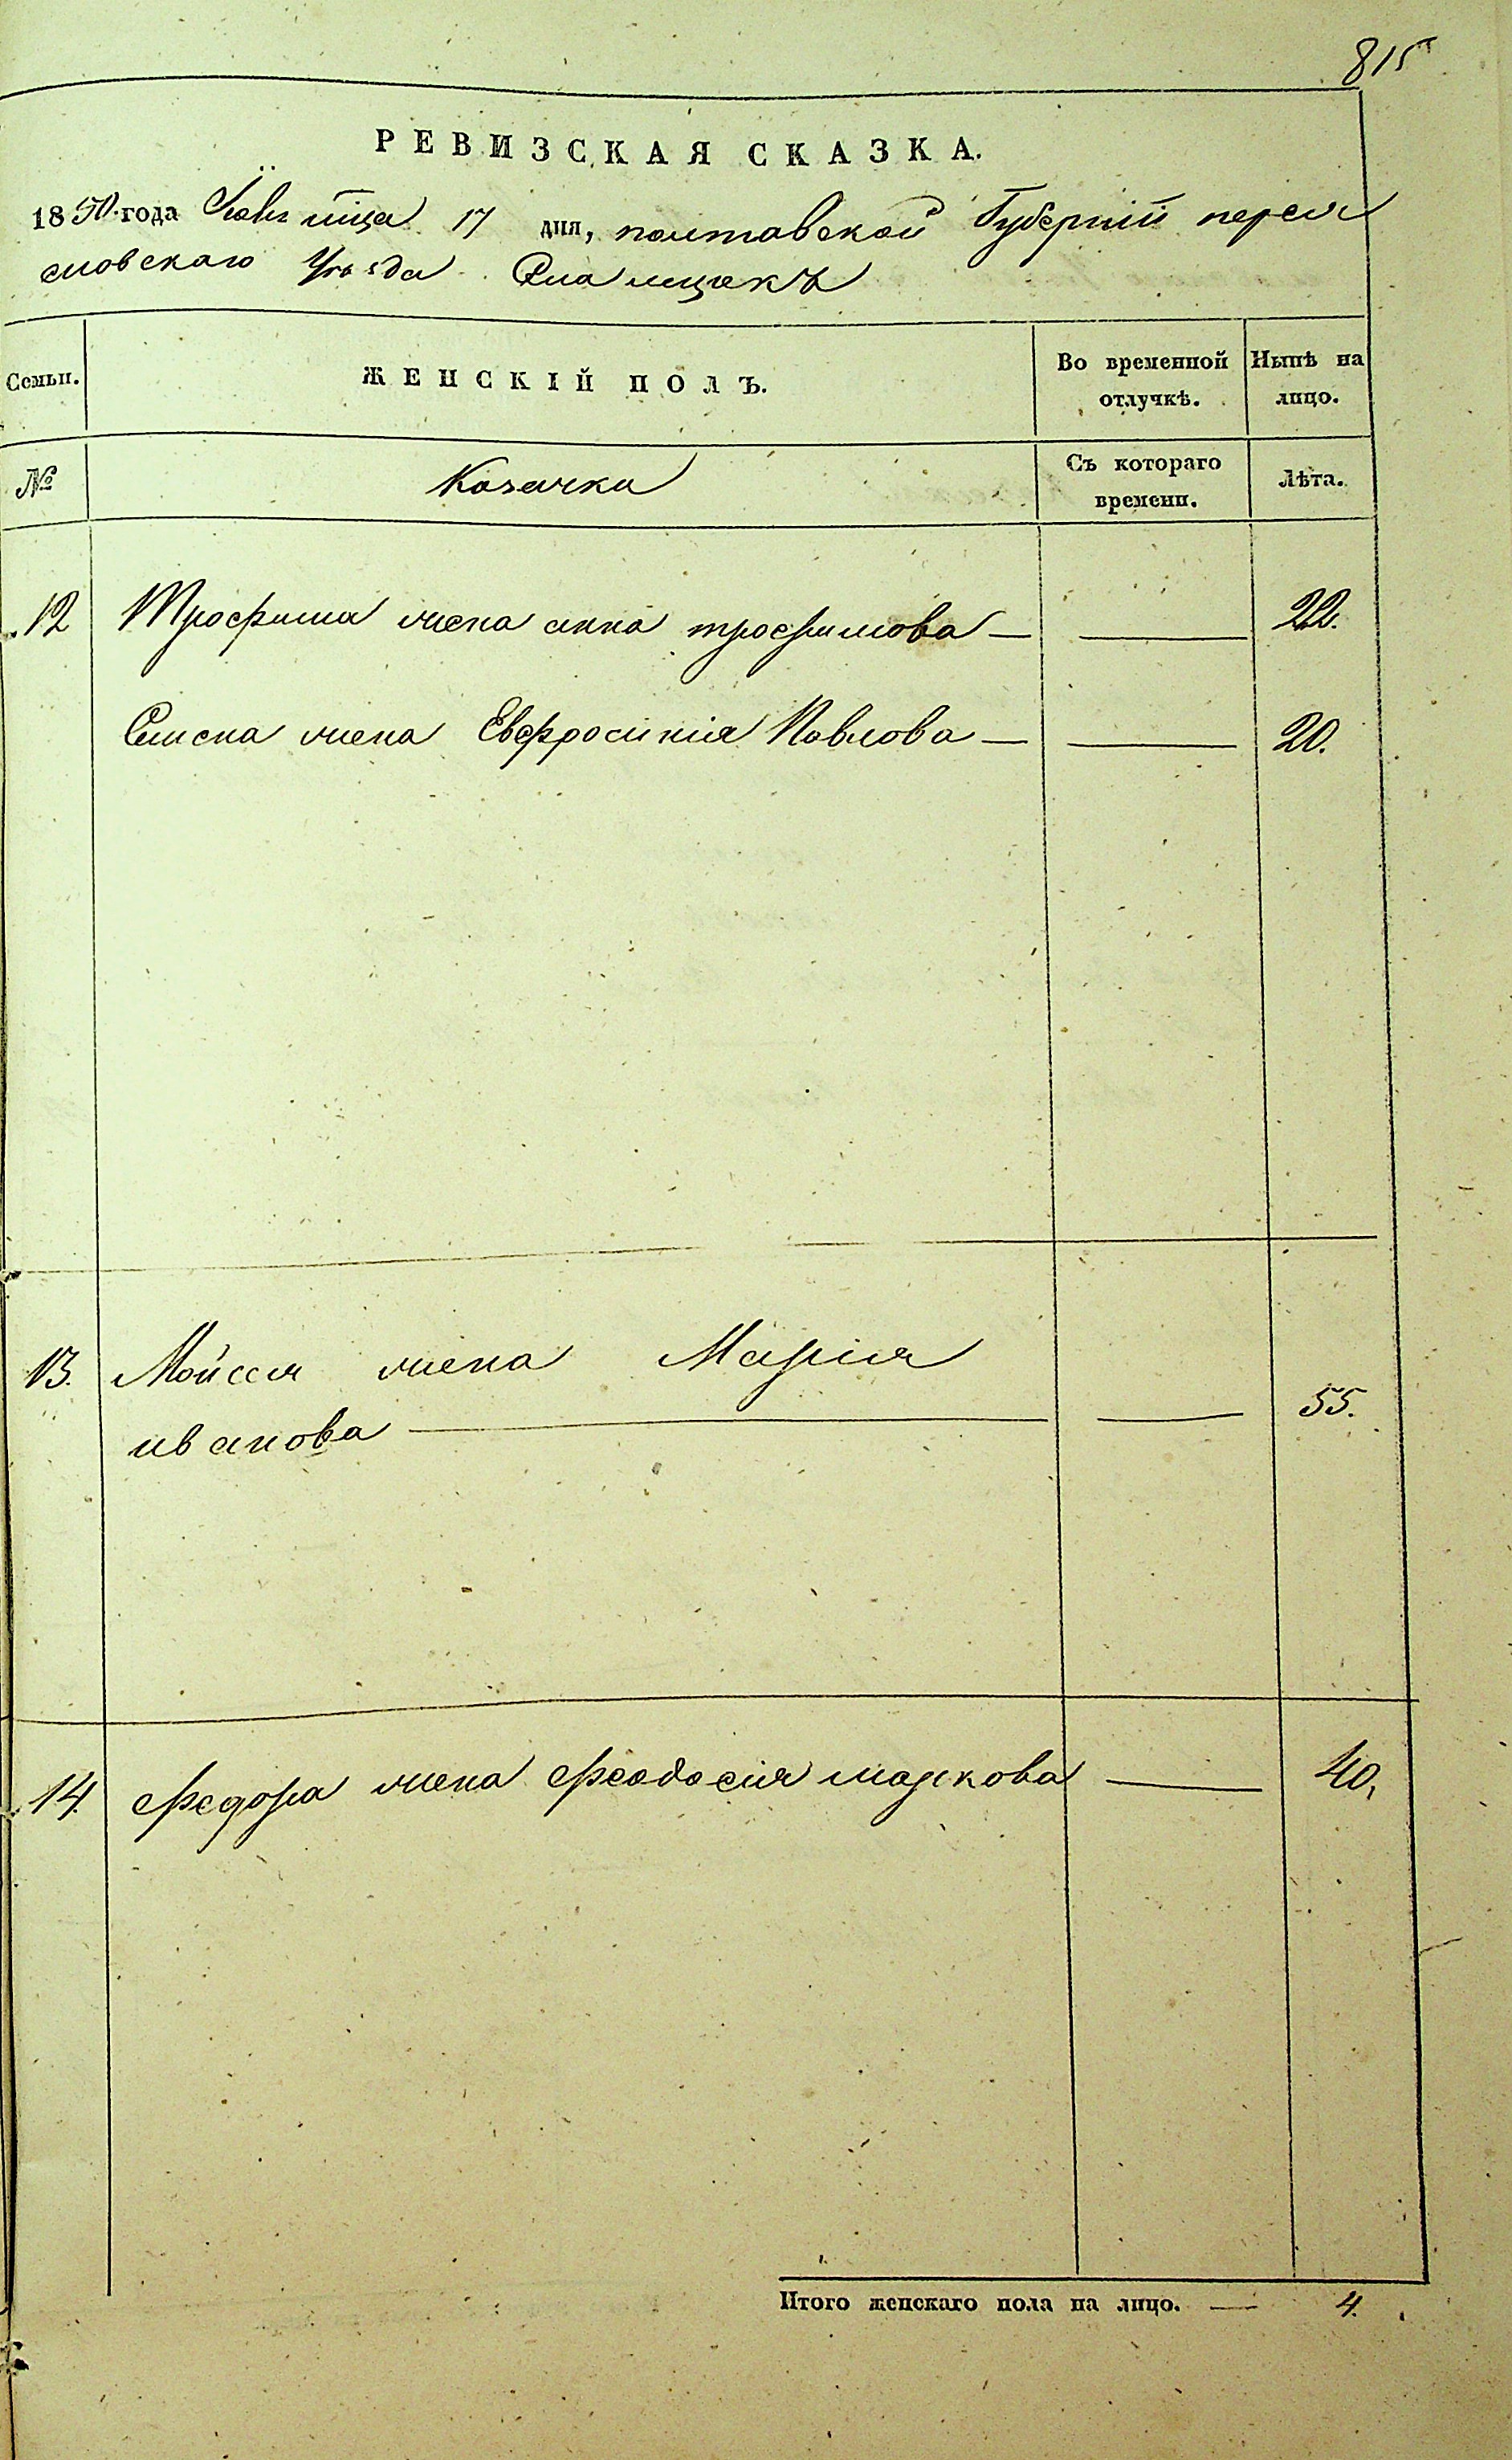 815
РЕВИЗСКАЯ СКАЗКА.
1850. года мѣсца 17 дня, полтавской Губерніи переяс
словскаго Уѣзда
Семьи. ЖЕНСКІЙ ПОЛЪ. Во временной отлучкѣ. Нынѣ на лицо.
№ Козачки Съ котораго времени. Лѣта.
12 Трофима жена анна трофимова — — 22.
жена Евфросинія Павлова — — 20.
13. Мойсея жена Марія
иванова — — 55.
14. Федора жена Феодосия маркова — 40,
Итого женскаго пола на лицо. — 4.